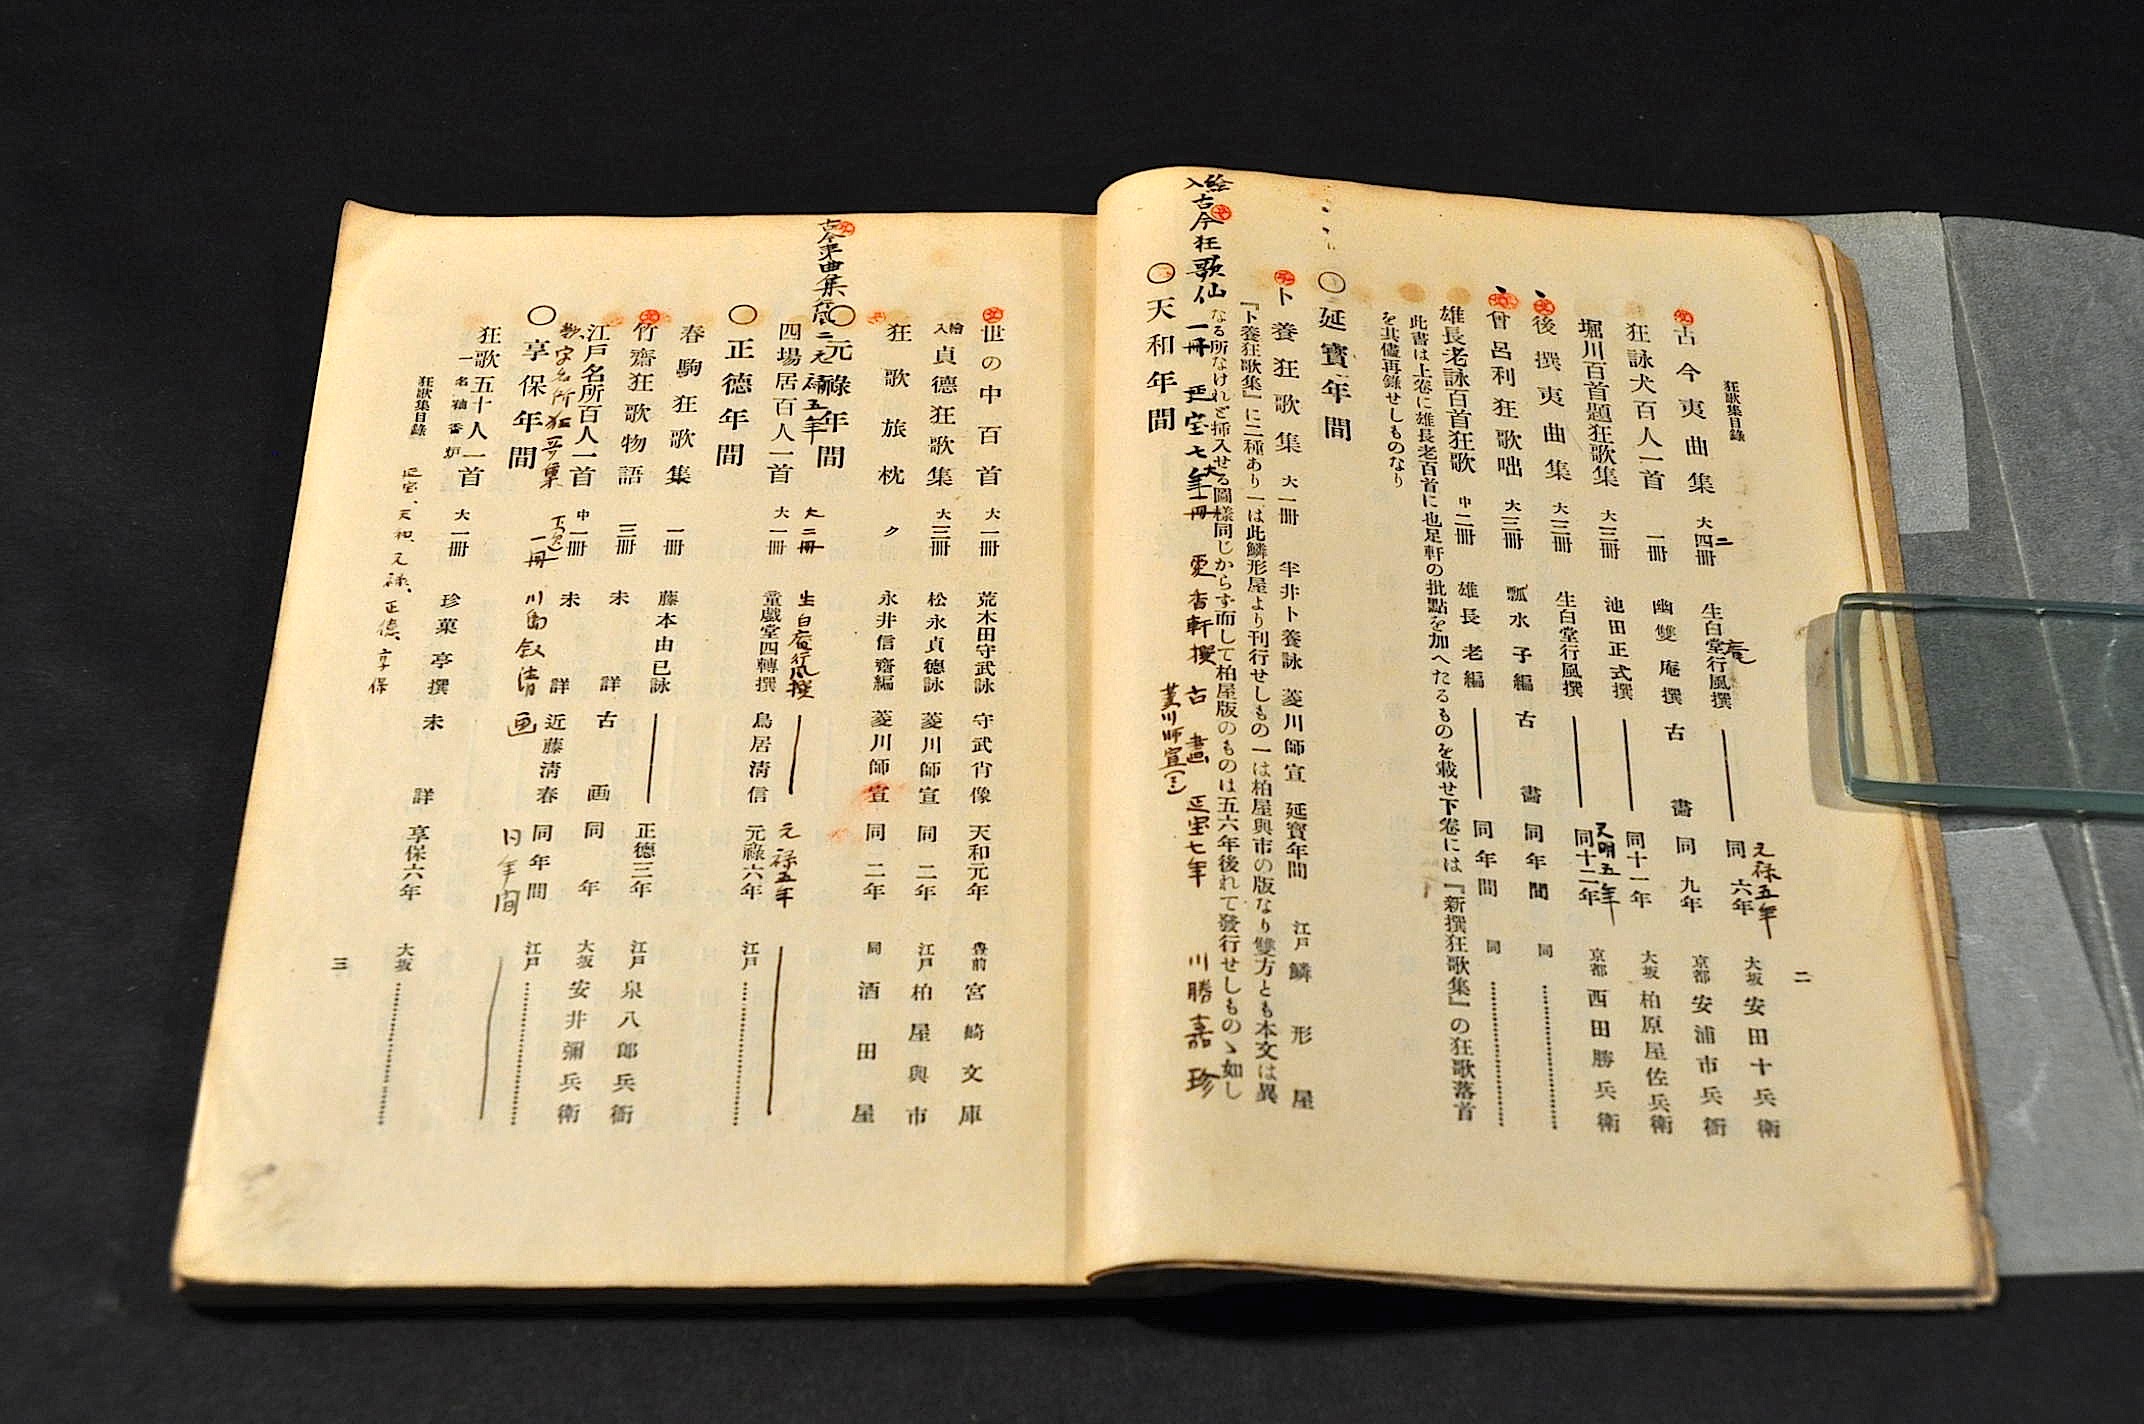 狂歌集目錄
二
古今夷曲集 大四冊 生白堂行風撰 同六年 大坂 安田十兵衛
二
庵
元禄五年
狂詠犬百人一首 一冊 幽雙庵撰 古畵 同九年 京都 安浦市兵衛
堀川百首題狂歌集 大三冊 池田正式撰 同十一年 大坂 柏原屋佐兵衛
後撰夷曲集 大三冊 生白堂行風撰 同十二年 京都 西田勝兵衛
曾呂利狂歌咄 大三冊 瓢水子編 古畵 同年間 同
雄長老詠百首狂歌 中二冊 雄長老編 同年間 同
此書は上卷に雄長老百首に也足軒の批點を加へたるものを載せ下卷には『新撰狂歌集』の狂歌落首
を其儘再錄せしものなり
○延寶年間
卜養狂歌集 大一冊 半井卜養詠 菱川師宣 延寶年間 江戸 鱗形屋
『卜養狂歌集』に二種あり一は此鱗形屋より刊行せしもの一は柏屋與市の版なり雙方とも本文は異
なる所なけれど挿入せる圖樣同じからず而して柏屋版のものは五六年後れて發行せしものゝ如し
絵入 古今狂歌仙 一冊 古畵 川勝嘉珍
○天和年間
世の中百首 大一冊 荒木田守武詠 守武肖像 天和元年 豊前 宮崎文庫
繪入 貞德狂歌集 大三冊 松永貞德詠 菱川師宣 同二年 江戸 柏屋與市
狂歌旅枕 永井信齋編 菱川師宣 同二年 同 酒田屋
○元祿年間
古今夷曲集 大二冊 生白庵行風撰 元禄五年
四場居百人一首 大一冊 童戲堂四轉撰 鳥居清信 元祿六年 江戸
○正德年間
春駒狂歌集 一冊 藤本由己詠 正德三年 江戸 泉八郎兵衛
竹齋狂歌物語 三冊 未詳 古画 同年 大坂 安井彌兵衛
江戸名所百人一首 中一冊 未詳 近藤清春 同年間 江戸
狂哥集 一冊 川島叙清画 同年間
○享保年間
狂歌五十人一首 大一冊 珍菓亭撰 未詳 享保六年 大坂
一名釉香炉
狂歌集目錄
天和、元禄、正德、享保
三